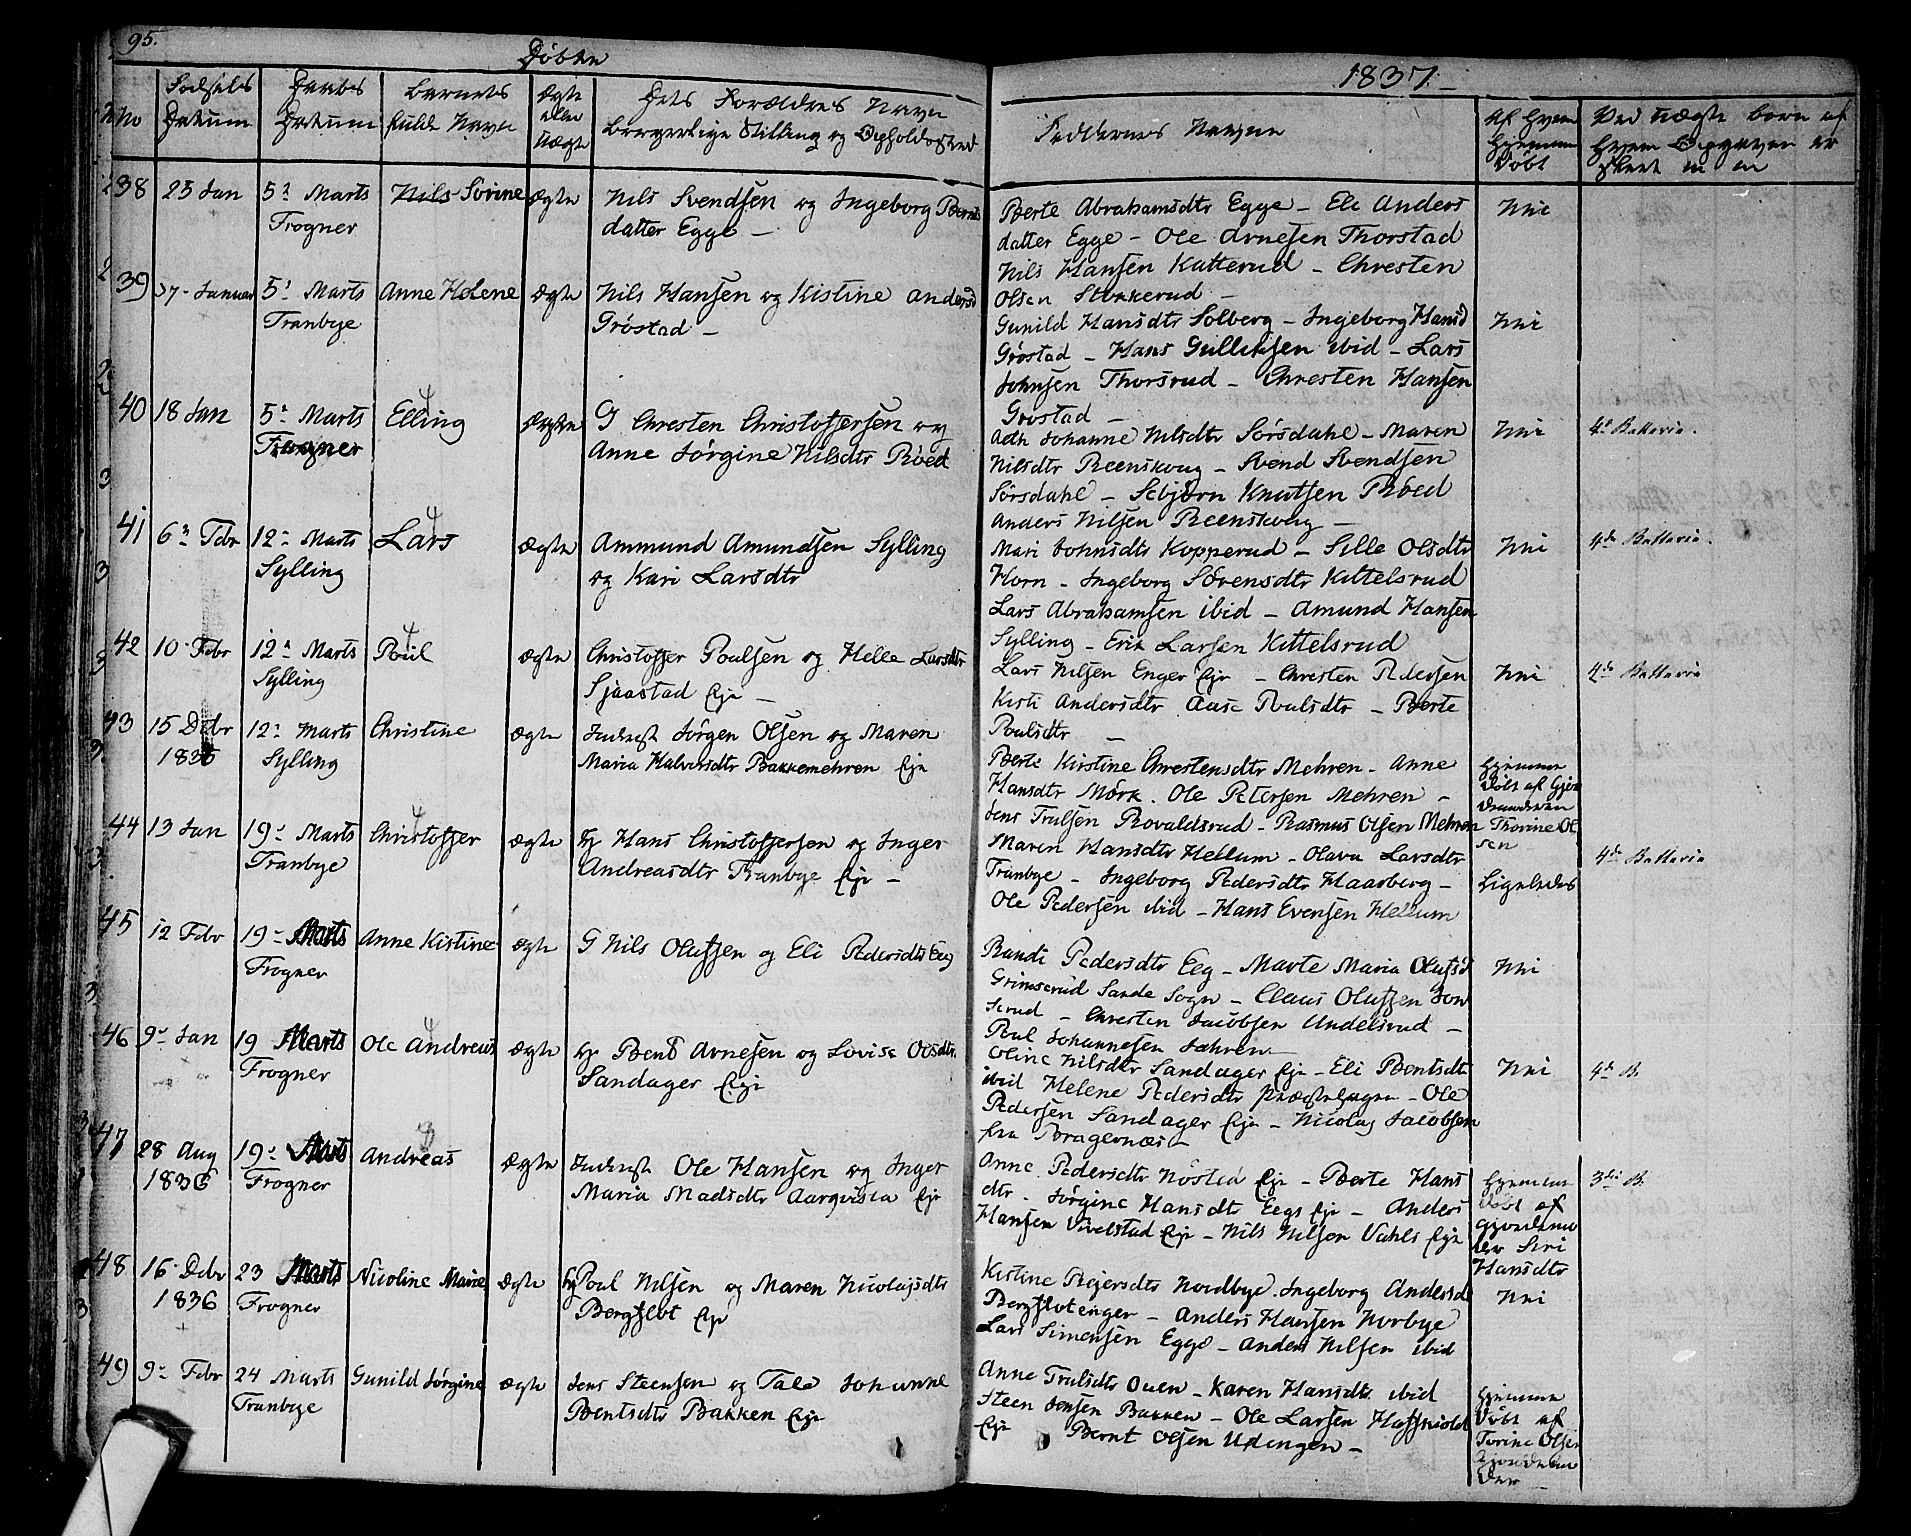 95.
Döbte
1837.
No
Fødsels Datum
Daabs Datum
Barnets fulde Navn
Ægte eller Uægte
Dets Forældres Navn
borgerlige Stilling og Opholdssted
Faddernes Navne
Af Hvem Hjemme Döbt
Ved uægte børn af
38 25 Jan 5te Marts Frogner Nils Sörine ægte
Nils Svendsen og Ingeborg Bernts
datter Egge —
Berte Abrahamsdtr Egge — Eli Anders
datter Egge — Ole Arnesen Thorstad
Nils Hansen Katterud — Chresten
Olsen
Nei
39 Januar 5t Marts Tranbye Anne Helene ægte
Nils Hansen og Kistine Andersd
Gröstad —
Gunild Hansdtr Solberg — Ingeborg Hansd
Gröstad — Hans Gulliksen ibid — Lars
Johnsen Thorsrud — Chresten Hansen
Gröstad —
Nei
40 18 Jan 5t Marts Frogner Elling 4 ægte
G Chresten Christoffersen og
Anne Jörgine Nilsdtr Röed
Johanne Nilsdtr Sörsdahl — Maren
Nilsdtr Reenskoug — Svend Svendsen
Sörsdahl — Sebjörn Knutsen Röed
Anders Nilsen Reenskoug —
Nei
4d Batteria.
41 6te Febr 12te Marts Sylling Lars 4 ægte
Ammund Amundsen Sylling
og Kari Larsdtr
Mari Johnsdtr Kopperud — Sille Olsdtr
Horn — Ingeborg Sörensdtr Kittelsrud
Lars Abrahamsen ibid — Amund Hansen
Sylling — Erik Larsen Kittelsrud
Nei
4de Batteria.
42 10 Febr 12te Marts Sylling Poul 4 ægte
Christoffer Poulsen og Helle Larsdtr
Sjaastad Eje —
Lars Nilsen Enger Eje — Chresten Pedersen
Kisti Andersdtr Aase Poulsdtr — Berte
Poulsdtr —
Nei
4de Batteria
43 15 Debr 1836 12t Marts Sylling Christine ægte
Inderst Jörgen Olsen og Maren
Maria Halvorsdtr Bakkemehren Eje
Berte Kirstine Chrestensdtr Mehren — Anne
Hansdtr Mörk. Ole Petersen Mehren —
Jens Trulsen Rovaldsrud — Rasmus Olsen Mehren
Hjemme
Döbt af Gjor
demoderen
Thorine Ol
sen
44 13 Jan 19t Marts Tranbye Christoffer 4 ægte
Hans Christoffersen og Inger
Andreasdtr Tranbye Eje —
Maren Hansdtr Hellum — Olava Larsdtr
Tranbye — Ingeborg Pedersdtr Haarberg —
Ole Pedersen ibid — Hans Evensen Hellum
Ligeledes
4de Batteria
45 12 Febr 19t Marts Frogner Anne Kistine ægte
G Nils Olufsen og Eli Pedersdtr Eeg
Randi Pedersdtr Eeg — Marte Maria Olufsd
Grimsrud Sande Sogn — Claus Olufsen Jon
serud — Chresten Jacobsen Undelsrud —
Poul Johannesen Jahren
Nei
46 9t Jan 19 Marts Frogner Ole Andreas 4 ægte
Bent Arnesen og Lovise Olsdtr.
Sandager Eje
Oline Nilsdtr Sandager Eje — Eli Bentsdtr
ibid Helene Pedersdtr Præstehagen — Ole
Pedersen Sandager Eje — Nicolay Jacobsen
fra Bragernæs —
Nei
4de B.
47 28 Aug 1836 19t Marts Frogner Andreas 3 ægte
Inderst Ole Hansen og Inger
Maria Madsdtr Aarqvisla Eje
Anne Pedersdtr Nöstea Eje — Berte Hans
dtr. Jörgine Hansdtr Eegs Eje — Anders
Hansen Vivelstad Eje — Nils Nilsen Vahls Eje
Hjemme
Döbt af
gjordemo
der Siri
Hansdtr
3die B.
48 16 Debr 1836 23 Marts Frogner Nicoline Marie ægte
Poul Nilsen og Maren Nicolaisdtr
Bergflöt Eje
Kistine Reiersdtr Nordbye. Ingeborg Andersd
Bergflotenger — Anders Hansen Norbye
Lars Simensen Egge — Anders Nilsen ibid
Nei
49 9t Febr 24 Marts Tranbye Gunild Jörgine ægte
Jens Steensen og Tale Johanne
Bentsdtr Bakken Eje
Anne Trulsdtr Ouen — Karen Hansdtr ibid
Steen Jensen Bakken — Ole Larsen Haffkiold
Eje Bernt Olsen Udengen —
Hjemme
Döbt af
Torine Olsen
Gjordemo
der